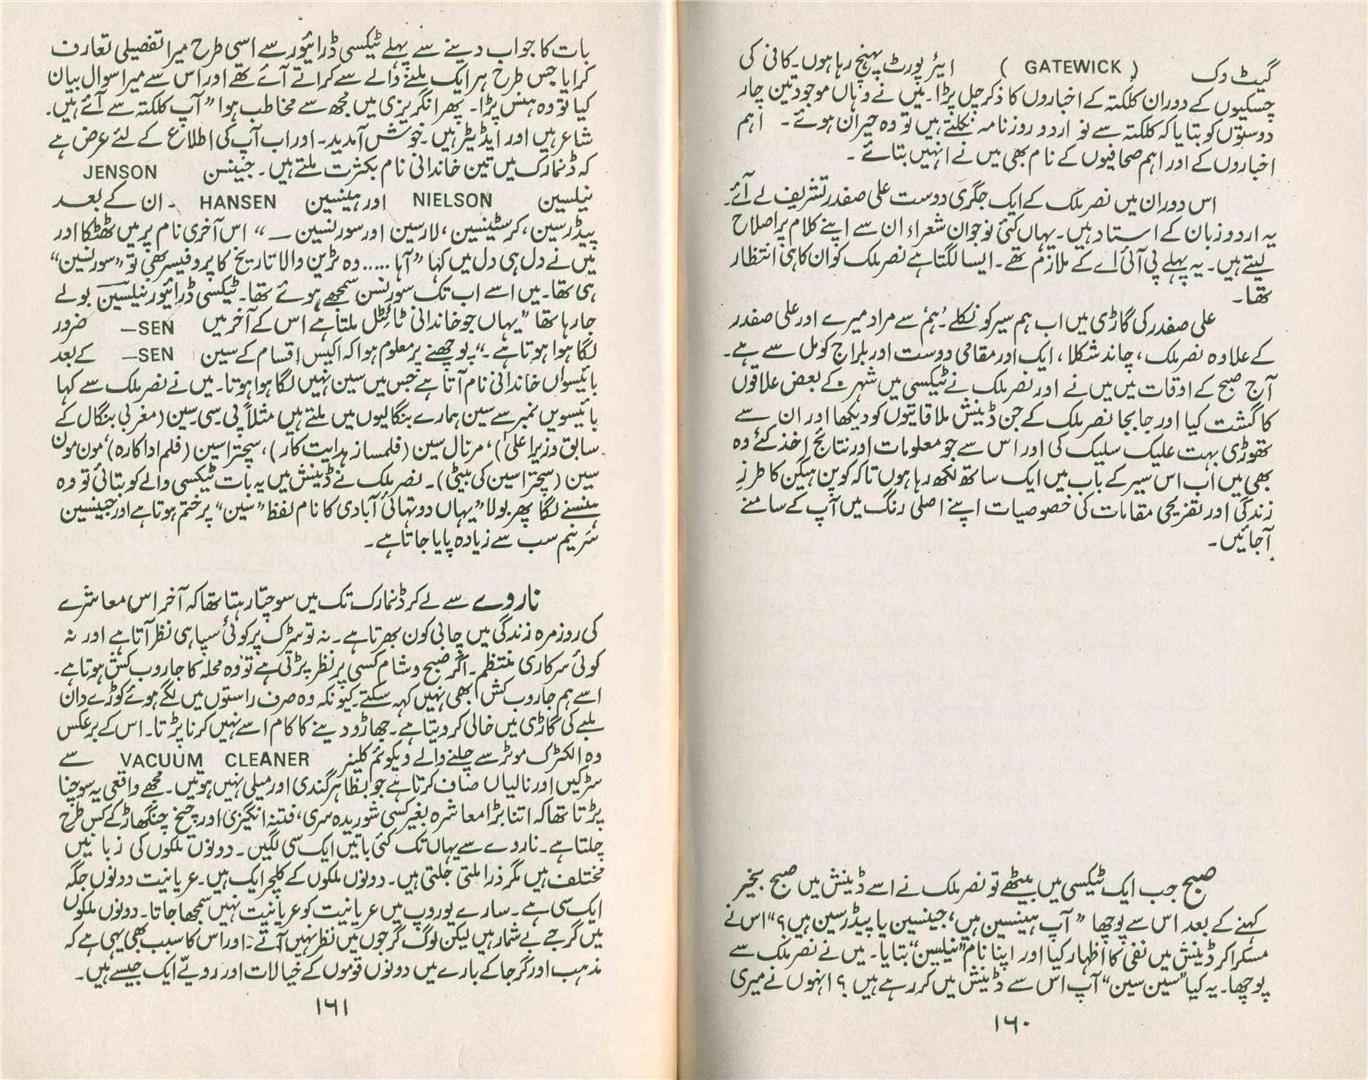 گیٹ وک ( GATEWICK ) ایئر پورٹ پہنچ رہا ہوں۔ کافی کی
چسکیوں کے دوران کلکتہ کے اخباروں کا ذکر چل پڑا۔ میں نے وہاں موجود تین چار
دوستوں کو بتایا کہ کلکتہ سے نو اردو روزنامہ نکلتے ہیں تو وہ حیران ہوئے۔ اہم
اخباروں کے اور اہم صحافیوں کے نام بھی میں نے انہیں بتائے۔
اس دوران میں نصر ملک کے ایک جگری دوست علی صفدر تشریف لے آئے۔
یہ اردو زبان کے استاد ہیں۔ یہاں کئی نوجوان شعراء ان سے اپنے کلام پر اصلاح
لیتے ہیں۔ یہ پہلے پی آئی اے کے ملازم تھے۔ ایسا لگتا ہے نصر ملک کو ان کا ہی انتظار
تھا۔
علی صفدر کی گاڑی میں اب ہم سیر کو نکلے۔ ’ہم‘ سے مراد میرے اور علی صفدر
کے علاوہ نصر ملک، چاند شکلا، ایک اور مقامی دوست اور بلراج کومل سے ہے۔
آج صبح کے اوقات میں میں نے اور نصر ملک نے ٹیکسی میں شہر کے بعض علاقوں
کا گشت کیا اور جا بجا نصر ملک کے جن ڈینش ملاقاتیوں کو دیکھا اور ان سے
تھوڑی بہت علیک سلیک کی اور اس سے جو معلومات اور نتائج اخذ کئے وہ
بھی میں اب اس سیر کے باب میں ایک ساتھ لکھ رہا ہوں تاکہ کوپن ہیگن کا طرزِ
زندگی اور تفریحی مقامات کی خصوصیات اپنے اصلی رنگ میں آپ کے سامنے
آجائیں۔
صبح جب ایک ٹیکسی میں بیٹھے تو نصر ملک نے اسے ڈینش میں صبح بخیر
کہنے کے بعد اس سے پوچھا ”آپ ہینسین ہیں، جینسین یا پیڈرسین ہیں؟“ اس نے
مسکرا کر ڈینش میں نفی کا اظہار کیا اور اپنا نام ”نیلسین“ بتایا۔ میں نے نصر ملک سے
پوچھا۔ یہ کیا ”سین سین“ آپ اس سے ڈینش میں کر رہے ہیں؟ انہوں نے میری
۱۶۰
بات کا جواب دینے سے پہلے ٹیکسی ڈرائیور سے اسی طرح میرا تفصیلی تعارف
کرایا جس طرح ہر ایک ملنے والے سے کراتے آئے تھے اور اس سے میرا سوال بیان
کیا تو وہ ہنس پڑا۔ پھر انگریزی میں مجھ سے مخاطب ہوا ”آپ کلکتہ سے آئے ہیں۔
شاعر ہیں اور ایڈیٹر ہیں۔ خوش آمدید۔ اور اب آپ کی اطلاع کے لئے عرض ہے
کہ ڈنمارک میں تین خاندانی نام بکثرت ملتے ہیں۔ جینسن JENSON
نیلسین NIELSON اور ہینسین HANSEN ۔ ان کے بعد
پیڈرسین، کرسٹینسین، لارسین اور سورنسین ــ“ اس آخری نام پر میں ٹھٹکا اور
میں نے دل ہی دل میں کہا ”آہا ..... وہ ٹرین والا تاریخ کا پروفیسر بھی تو ”سورنسین“
ہی تھا۔ میں اسے اب تک سورنسن سمجھے ہوئے تھا۔ ٹیکسی ڈرائیور نیلسین بولے
جا رہا تھا ”یہاں جو خاندانی ٹائٹل ملتا ہے اس کے آخر میں SEN– ضرور
لگا ہوا ہوتا ہے۔“ پوچھنے پر معلوم ہوا کہ اکیس اقسام کے سین SEN– کے بعد
بائیسواں خاندانی نام آتا ہے جس میں سین نہیں لگا ہوا ہوتا۔ میں نے نصر ملک سے کہا
بائیسویں نمبر سے سین ہمارے بنگالیوں میں ملتے ہیں مثلاً پی۔سی۔سین (مغربی بنگال کے
سابق وزیرِ اعلیٰ)، مرنال سین (فلمساز ہدایت کار)، سچترا سین (فلم اداکارہ)، مون مون
سین (سچترا سین کی بیٹی)۔ نصر ملک نے ڈینش میں یہ بات ٹیکسی والے کو بتائی تو وہ
ہنسنے لگا پھر بولا ”یہاں دو تہائی آبادی کا نام لفظ ”سین“ پر ختم ہوتا ہے اور جینسین
سَر نیم سب سے زیادہ پایا جاتا ہے۔
ناروے سے لے کر ڈنمارک تک میں سوچتا رہتا تھا کہ آخر اس معاشرے
کی روزمرہ زندگی میں چابی کون بھرتا ہے۔ نہ تو سڑک پر کوئی سپاہی نظر آتا ہے اور نہ
کوئی سرکاری منتظم۔ اگر صبح و شام کسی پر نظر پڑتی ہے تو وہ محلہ کا جاروب کش ہوتا ہے۔
اسے ہم جاروب کش بھی نہیں کہہ سکتے کیونکہ وہ صرف راستوں میں لگے ہوئے کوڑے دان
ملبے کی گاڑی میں خالی کر دیتا ہے۔ جھاڑو دینے کا کام اسے نہیں کرنا پڑتا۔ اس کے برعکس
وہ الکٹرک موٹر سے چلنے والے ویکوئم کلینر VACUUM CLEANER سے
سڑکیں اور نالیاں صاف کرتا ہے جو بظاہر گندی اور میلی نہیں ہوتیں۔ مجھے واقعی یہ سوچنا
پڑتا تھا کہ اتنا بڑا معاشرہ بغیر کسی شوریدہ سری، فتنہ انگیزی اور چیخ چنگھاڑ کے کس طرح
چلتا ہے۔ ناروے سے یہاں تک کئی باتیں ایک سی لگیں۔ دونوں ملکوں کی زبانیں
مختلف ہیں مگر ذرا ملتی جلتی ہیں۔ دونوں ملکوں کے کلچر ایک ہیں۔ عریانیت دونوں جگہ
ایک سی ہے۔ سارے یوروپ میں عریانیت کو عریانیت نہیں سمجھا جاتا۔ دونوں ملکوں
میں گرجے بے شمار ہیں لیکن لوگ گرجوں میں نظر نہیں آتے۔ اور اس کا سبب بھی یہی ہے کہ
مذہب اور گرجا کے بارے میں دونوں قوموں کے خیالات اور رویّے ایک جیسے ہیں۔
۱۶۱